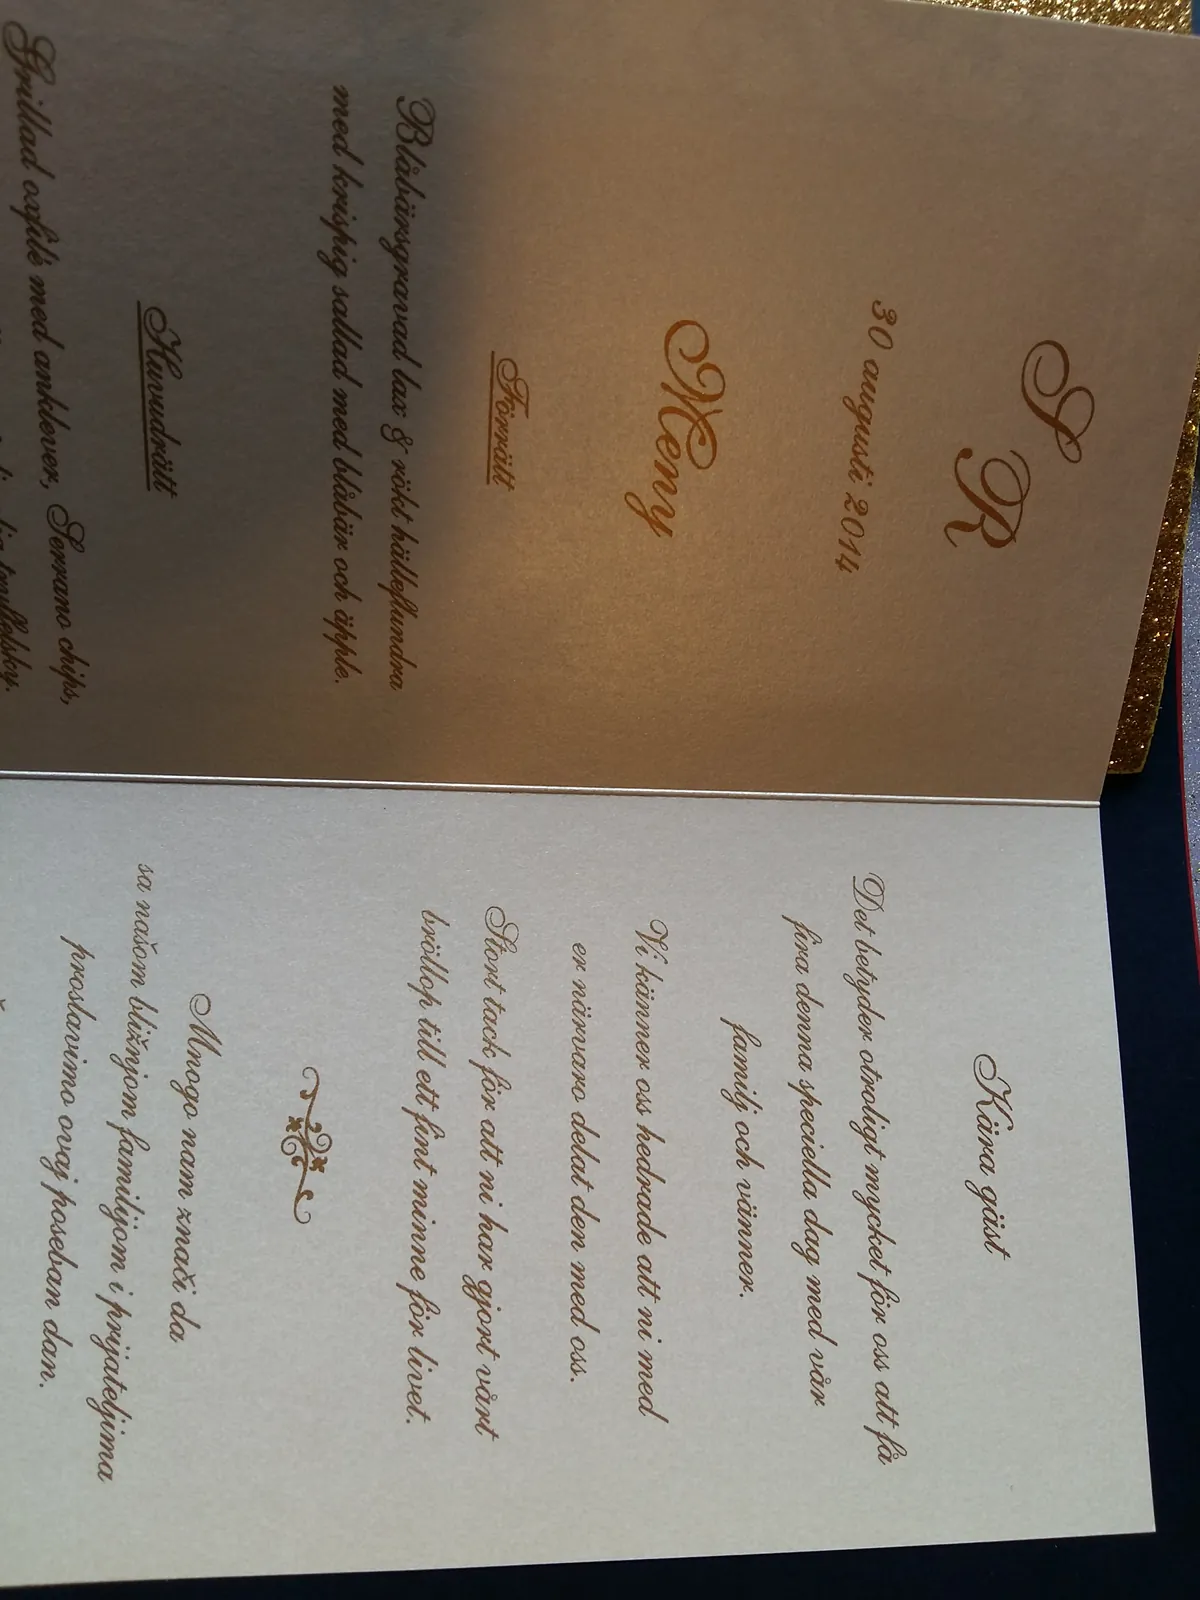 S
R
30 augusti 2014
Meny
Förrätt
Blåbärsgravad lax & rökt hälleflundra
med krispig sallad med blåbär och äpple.
Huvudrätt
Grillad oxfilé med anklever, Serrano chips,
tryffelsky.
Kära gäst
Det betyder otroligt mycket för oss att få
fira denna speciella dag med vår
familj och vänner.
Vi känner oss hedrade att ni med
er närvaro delat den med oss.
Stort tack för att ni har gjort vårt
bröllop till ett fint minne för livet.
Mnogo nam znači da
sa našom bližnjom familijom i prijateljima
proslavimo ovaj poseban dan.